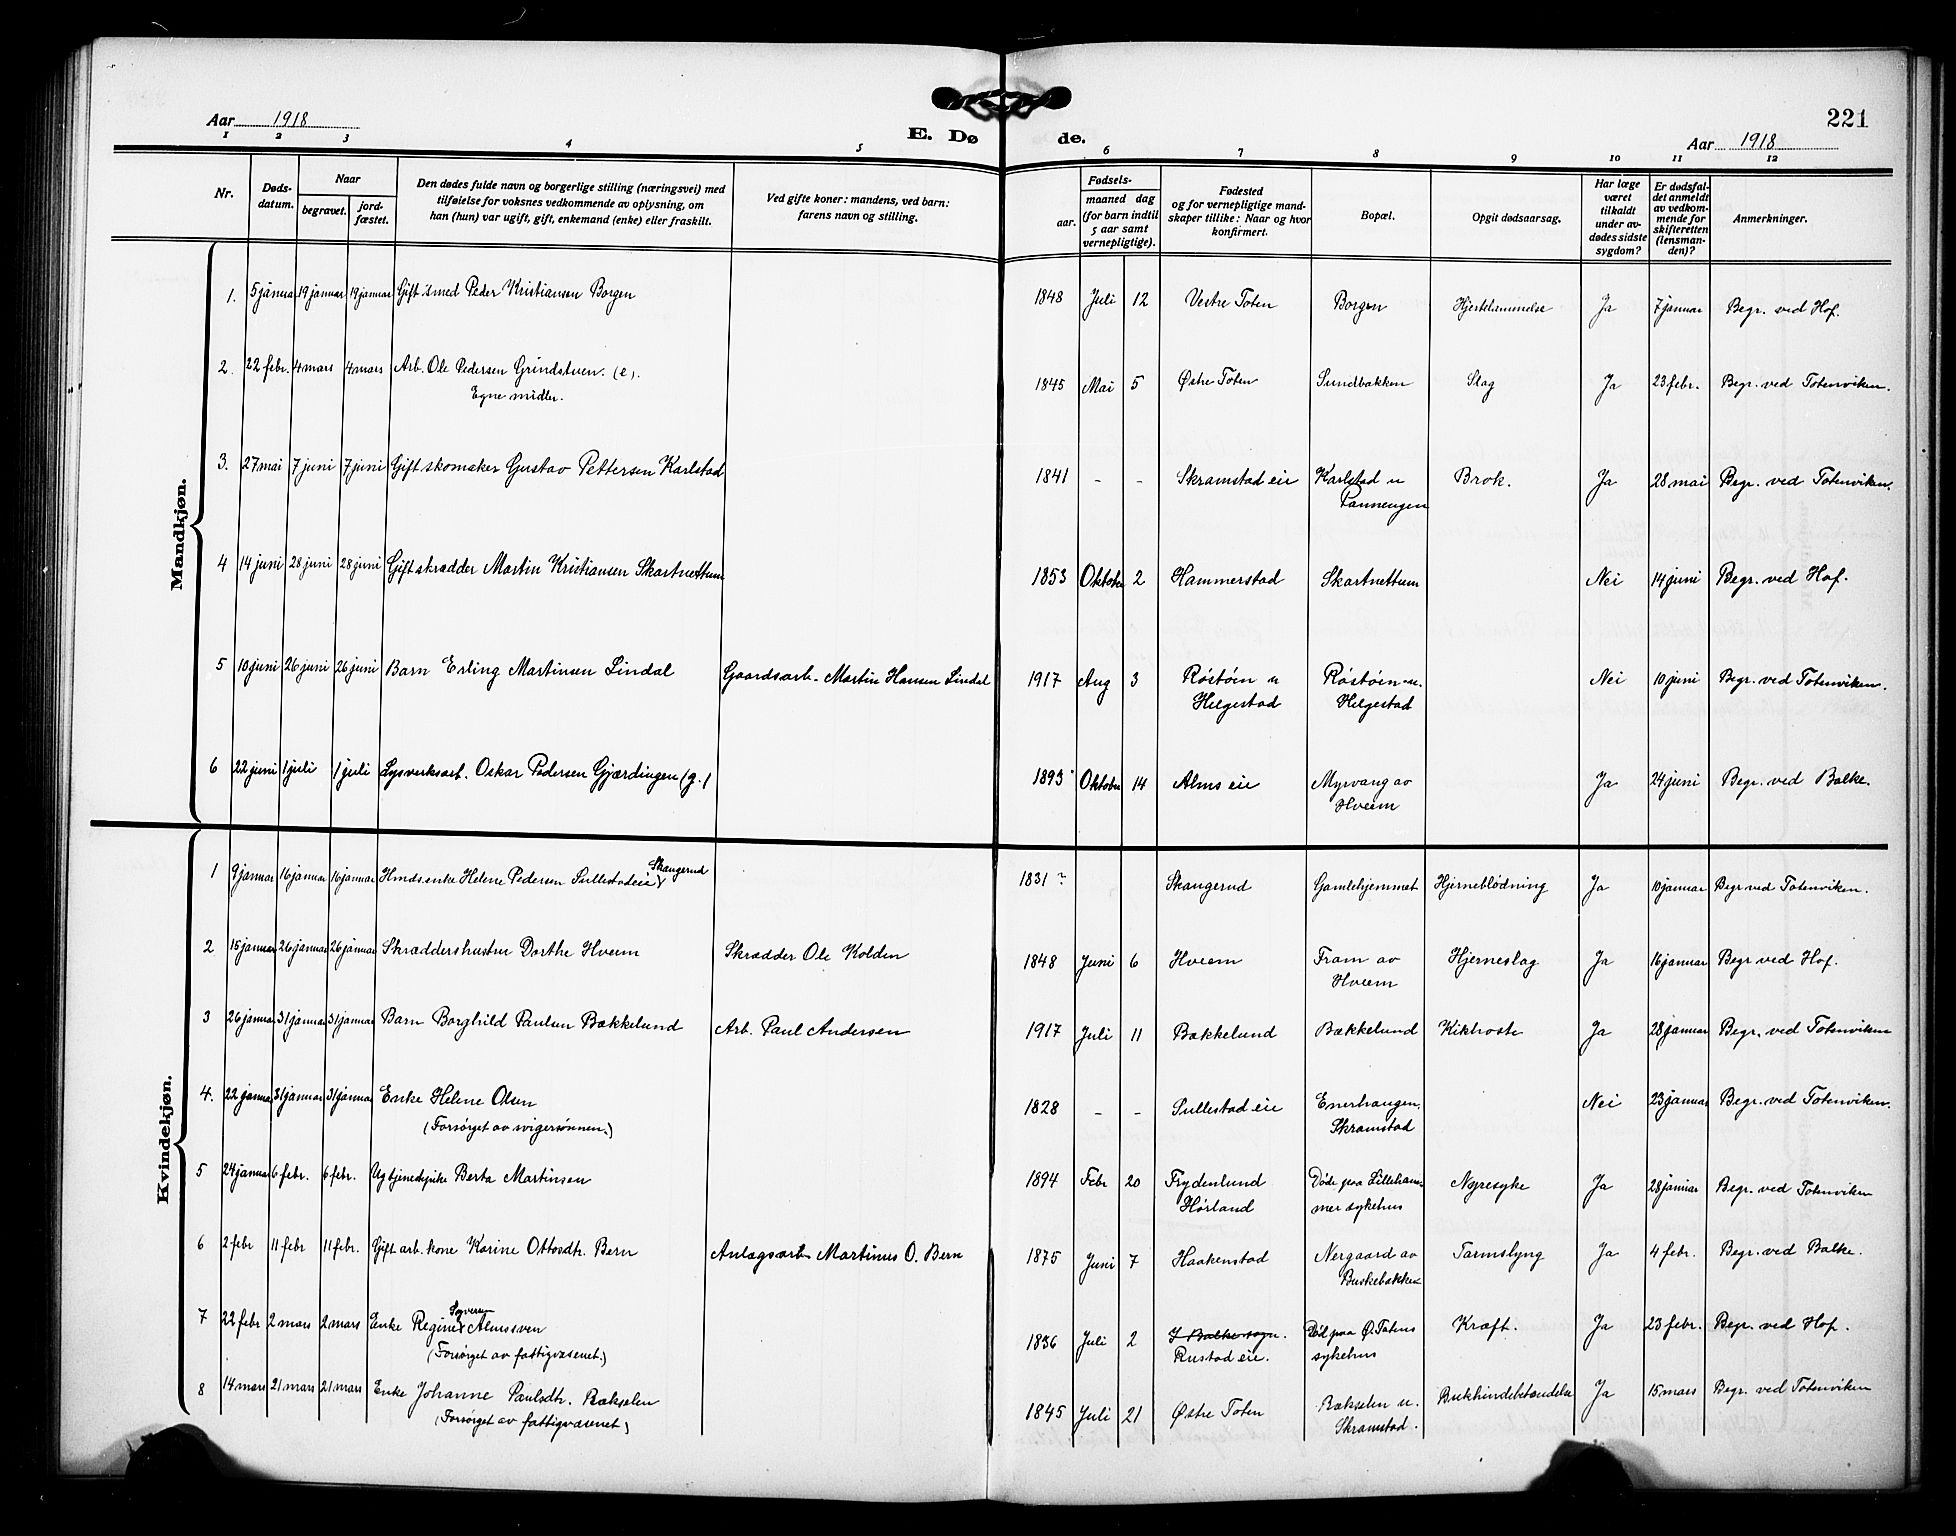 221
Aar 1918
E. Dø de.
Aar 1918
1 2 3 4 5 6 7 8 9 10 11 12
Nr.
Døds-
datum.
Naar
begravet.
jord-
fæstet.
Den dødes fulde navn og borgerlige stilling (næringsvei) med
tilføielse for voksnes vedkommende av oplysning, om
han (hun) var ugift, gift, enkemand (enke) eller fraskilt.
Ved gifte koner: mandens, ved barn:
farens navn og stilling.
Fødsels-
aar.
maaned dag
(for barn indtil
5 aar samt
vernepligtige).
Fødested
og for vernepligtige mand-
skaper tillike: Naar og hvor
konfirmert.
Bopæl.
Opgit dødsaarsag.
Har læge
været
tilkaldt
under av-
dødes sidste
sygdom?
Er dødsfal-
det anmeldt
av vedkom-
mende for
skifteretten
(lensman-
den)?
Anmerkninger.
Mandkjøn.
1. 5 januar 19 januar 19 januar Gift smed Peder Kristiansen Borgen 1848 Juli 12 Vestre Toten Borgen Hjertelammelse Ja 7 januar Begr. ved Hof.
2. 22 febr. 4 mars 4 mars Arb. Ole Pedersen Grindstuen. (e). 1845 Mai 5 Østre Toten Sundbakken Slag Ja 23 febr. Begr. ved Totenviken.
Egne midler.
3. 27 mai 7 juni 7 juni Gift skomaker Gustav Pettersen Karlstad 1841 - - Skramstad eie Karlstad u Brok. Ja 28 mai Begr. ved Totenviken.
Pannengen
4 14 juni 28 juni 28 juni Gift skrædder Martin Kristiansen Skartnettum 1853 Oktober 2 Hammerstad Skartnettum Nei 14 juni Begr. ved Hof.
5 10 juni 26 juni 26 juni Barn Erling Martinsen Lindal Gaardsarb. Martin Hansen Lindal 1917 Aug 3 Røstøen u Røstøen u. Nei 10 juni Begr. ved Totenviken.
Helgestad Helgestad
6 22 juni 1 juli 1 juli Lysverksarb. Oskar Pedersen Gjærdingen (g.) 1893 Oktober 14 Alms eie Myrvang av Ja 24 juni Begr. ved Balke.
Hveem
Kvindekjøn.
Skangerud
1 9 januar 16 januar 16 januar Hmds. enke Helene Pedersen Sullestadeie 1831 ? Skangerud Gamlehjemmet Hjerneblødning Ja 10 januar Begr ved Totenviken.
2 15 januar 26 januar 26 januar Skræddershustru Dorthe Hveem Skrædder Ole Kolden 1848 Juni 6 Hveem Fram av Hjerneslag Ja 16 januar Begr ved Hof.
Hveem
3 26 januar 31 januar 31 januar Barn Borghild Paulsen Bækkelund Arb. Paul Andersen 1917 Juli 11 Bækkelund Bækkelund Kikhoste Ja 28 januar Begr. ved Totenviken
4. 22 januar 31 januar 31 januar Enke Helene Olsen 1828 - - Sullestad eie Enerhaugen. Nei 23 januar Begr. ved Totenviken.
(Forsørget av svigersønnen.) Skramstad
5 24 januar 6 febr. 6 febr. Ug tjenestepike Berta Martinsen 1894 Febr 20 Frydenlund Døde paa Lilleham- Nyresyke Ja 28 januar Begr. ved Totenviken
Hørland mer sykehus
6 2 febr 11 febr 11 febr. Gift arb. kone Karine Ottosdtr. Bern Anlægsarb Martinus O. Bern 1875 Juni 7 Haakenstad Nergaard av Tarmslyng Ja 4 febr. Begr. ved Balke.
Buskebakken
Syversen
7 22 febr 2 mars 2 mars Enke Regine Almssven 1836 Juli 2 I Balke sogn. Død paa Ø. Totens Kræft. Ja 23 febr. Begr. ved Hof.
(Forsørget av fattigvæsenet.) Rustad eie. sykehus
8 14 mars 21 mars 21 mars Enke Johanne Paulsdtr. Bækselen 1845 Juli 21 Østre Toten Bækselen u. Bukhindebetændelse Ja 15 mars Begr. ved Totenviken
(Forsørget av fattigvæsenet) Skramstad.